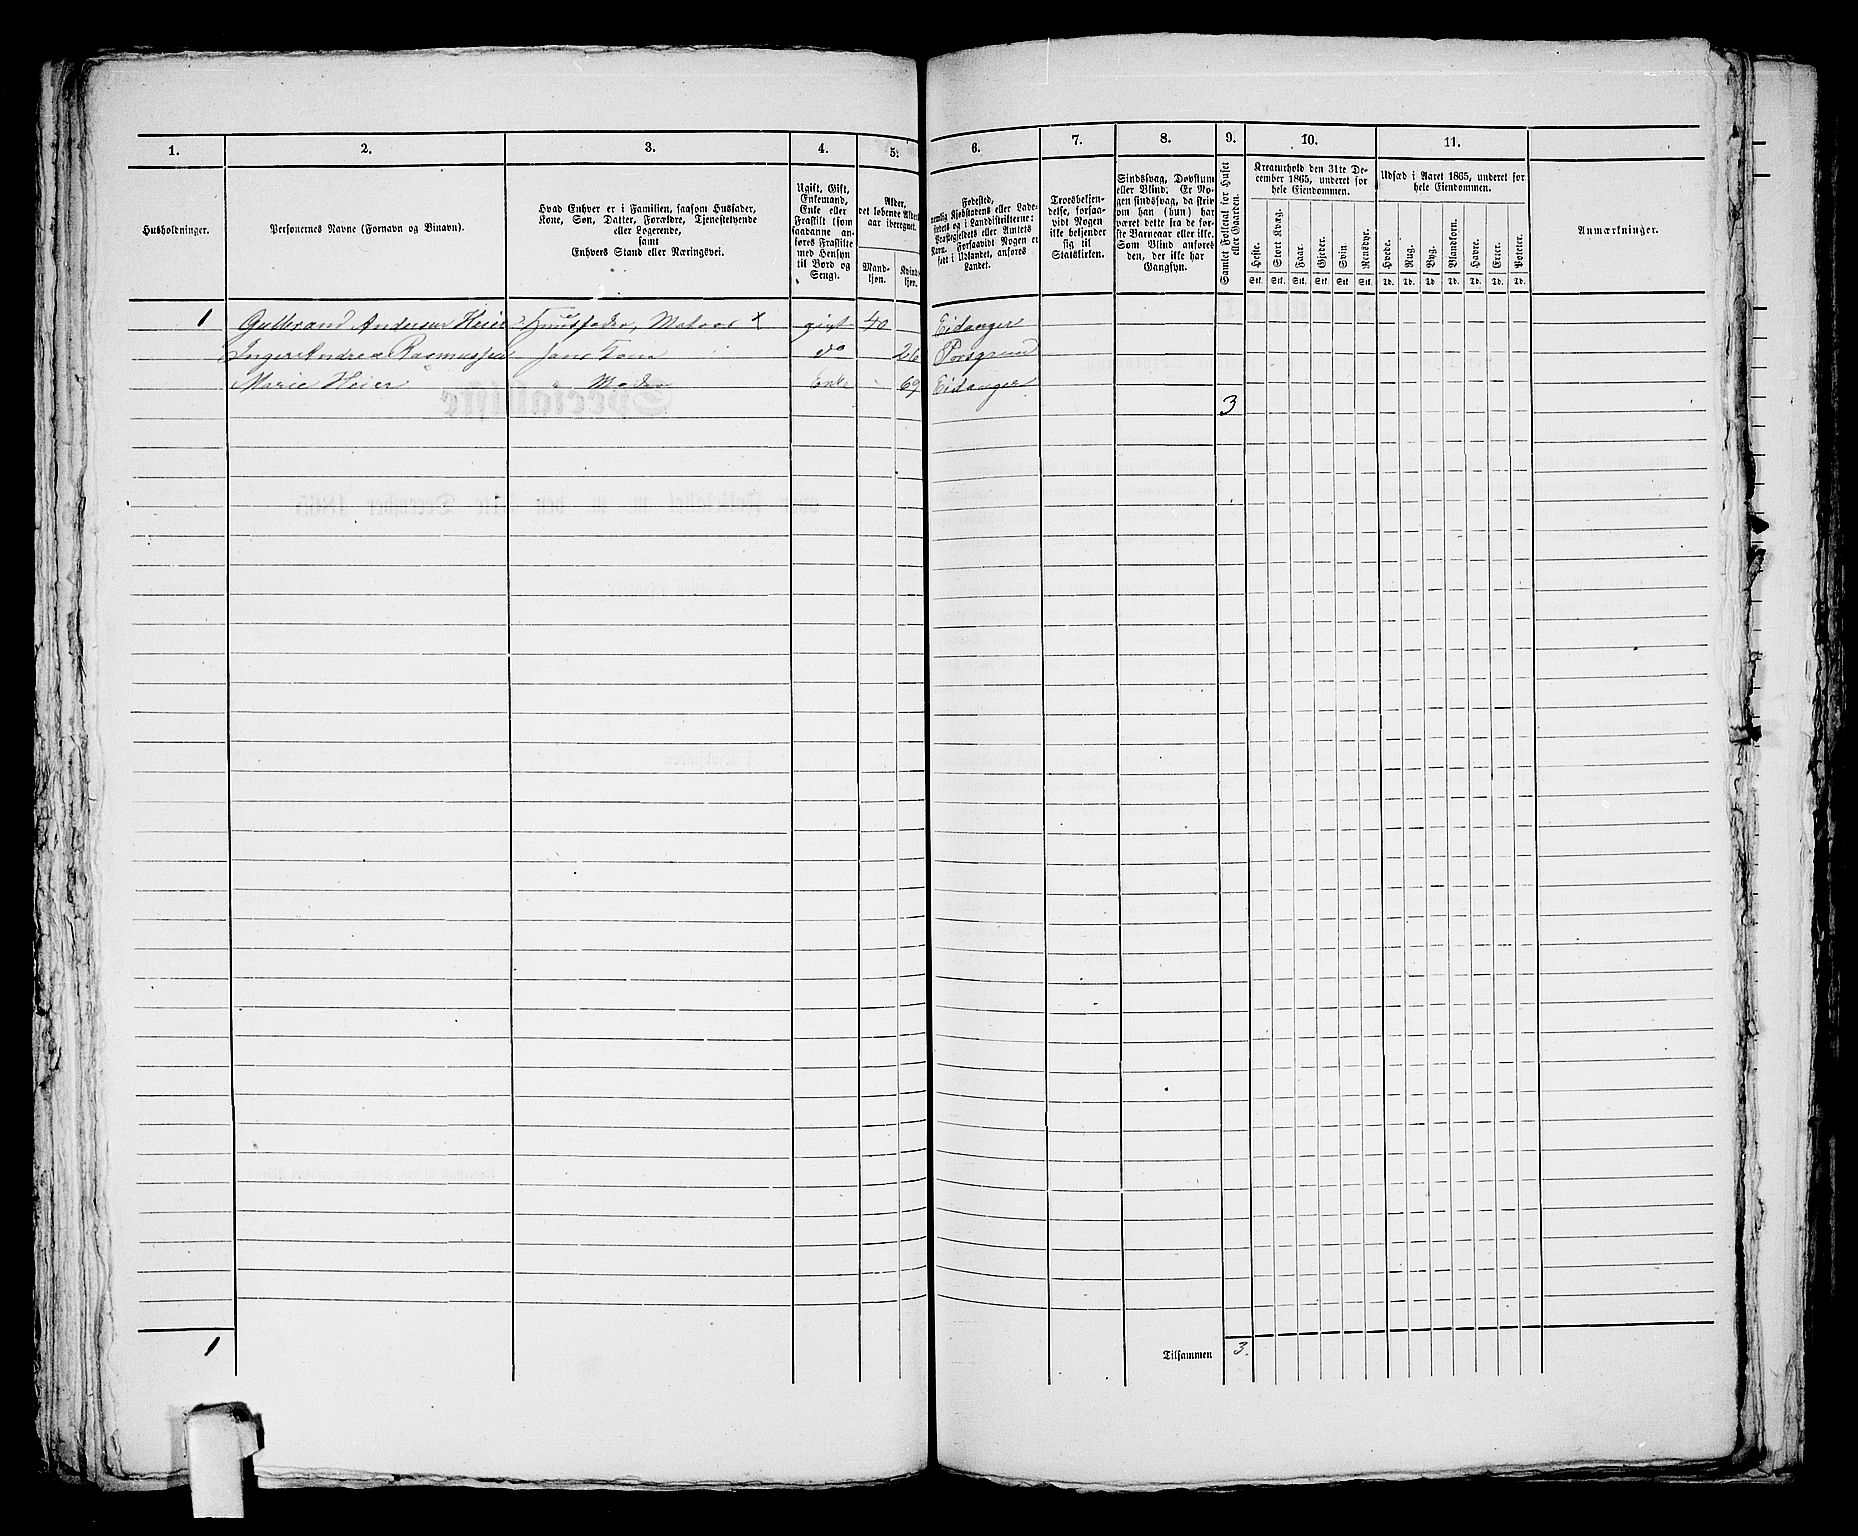 1. 2. 3. 4. 5. 6. 7. 8. 9. 10. 11.
Husholdninger.
Personernes Navne (Fornavn og Binavn).
Hvad Enhver er i Familien, saasom Husfader,
Kone, Søn, Datter, Forældre, Tjenestetyende
eller Logerende,
samt
Enhvers Stand eller Næringsvei.
Ugift, Gift,
Enkemand,
Enke eller
Fraskilt (som
saadanne an-
føres Fraskilte
med Hensyn
til Bord og
Seng).
Alder,
det løbende Alders-
aar iberegnet.
Mand-
kjøn.
Kvind-
kjøn.
Fødested,
nemlig Kjøbstadens eller Lade-
stedets og i Landdistrikterne:
Præstegjeldets eller Amtets
Navn. Forsaavidt Nogen er
født i Udlandet, anføres
Landet.
Troesbekjen-
delse, forsaa-
vidt Nogen
ikke bekjender
sig til
Statskirken.
Sindssvag, Døvstum
eller Blind. Er No-
gen sindssvag, da skriv
om han (hun) har
været dette fra de før-
ste Barneaar eller ikke.
Som Blind anføres
den, der ikke har
Gangsyn.
Samlet Folketal for Huset
eller Gaarden.
Kreaturhold den 31te De-
cember 1865, underet for
hele Eiendommen.
Heste. Stort Kvæg. Faar. Gjeder. Svin Rensdyr.
Stk. Stk. Stk. Stk. Stk. Stk.
Udsæd i Aaret 1865, underet for
hele Eiendommen.
Hvede. Rug. Byg. Blandkorn. Havre. Erter. Poteter.
Td. Td. Td. Td. Td. Td. Td.
Anmærkninger.
1 Gulbrand Andersen Heier Huusfader, Matros X gift 40 Eidanger
Inger Andrea Rasmussen hans Kone do 26 Porsgrund
Marie Heier " Moder Enke 69 Eidanger
3
1 Tilsammen 3.